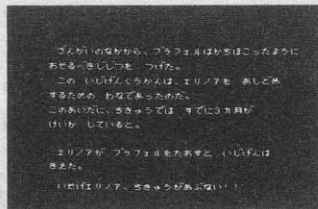 ざんがいのなかから、プラフェルはかちほこったように
おそるべきじじつを つげた。
この いじげんくうかんは、エリノアを あしどめ
するための わなであったのだ。
このあいだに、ちきゅうでは すでに3ヵ月が
けいか していると。
エリノアが、プラフェルをたおすと いじげんは
きえた。
いそげエリノア、ちきゅうがあぶない！！